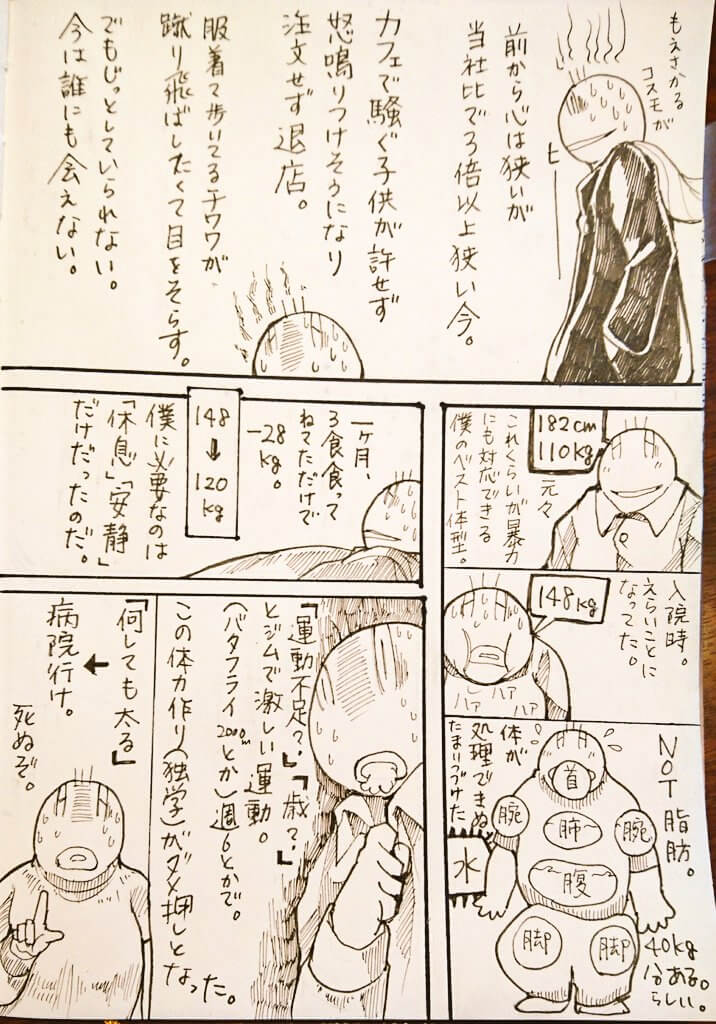 もえさかる
コスモが
ヒ
前から心は狭いが
当社比で3倍以上狭い今。
カフェで騒ぐ子供が許せず
怒鳴りつけそうになり
注文せず退店。
服着て歩いてるチワワが
蹴り飛ばしたくて目をそらす。
でもじっとしていられない。
今は誰にも会えない。
182cm
110kg
元々
これくらいが暴力
にも対応できる
僕のベスト体型。
入院時。
えらいことに
なってた。
148kg
ハァ
ハァ
ハァ
NOT脂肪。
体が
処理できぬ
たまりつづけた
水
首
腕
肺
腕
腹
脚
脚
40kg
分ある
らしい。
一ヶ月、
3食食って
ねてただけで
-28
kg。
148
↓
120
kg
僕に必要なのは
「休息」「安静」
だけだったのだ。
「運動不足?」「歳?」
とジムで激しい運動。
(バタフライ2000mとか)週6とかで。
この体力作り(独学)がダメ押しとなった。
「何しても太る」
↓
病院行け。
死ぬぞ。